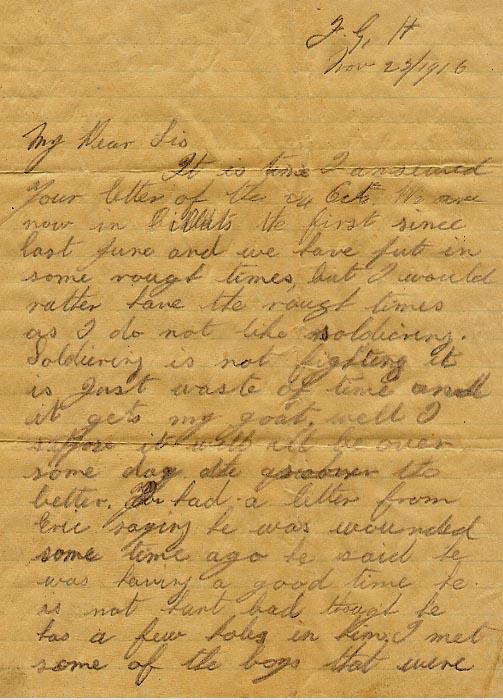 J. G. H
Nov 23/1916
My Dear Sis
It is time I answered
Your letter of the 24 Oct. We are
now in billits the first since
last June and we have put in
some rough times, but I would
ratter have the rough times
as I do not like soldiering.
Soldiering is not fighting it
is just waste of time and
it gets my goat. well I
suppose it will all be over
some day the sooner the
better. I had a letter from
Eric saying he was wounded
some time ago he said he
was having a good time he
is not hurt bad though he
has a few holes in him, I met
some of the boys that were